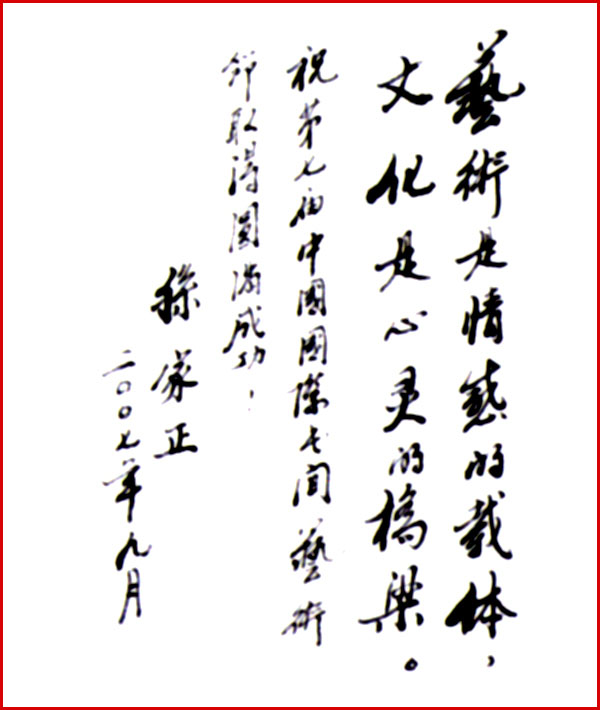 藝術是情感的载体，
文化是心灵的橋梁。
祝第七届中國國際民间藝術
節取得圓满成功！
孫家正
二〇〇七年九月